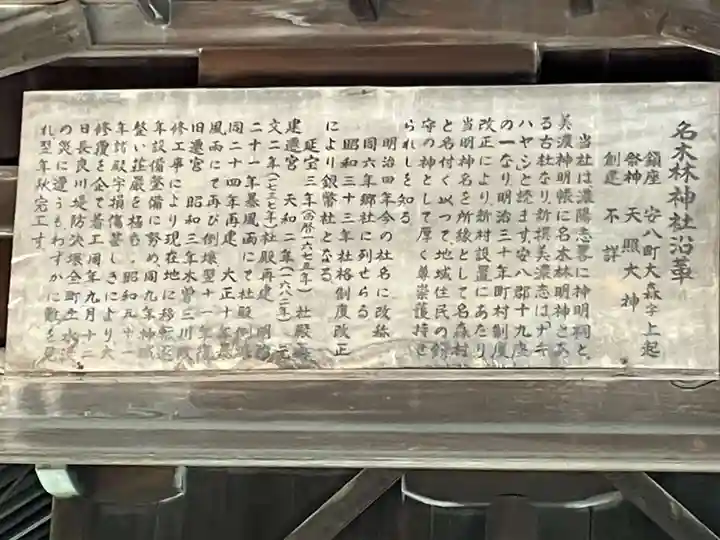 名木林神社沿革
鎮座 安八町大森字上起
祭神 天照大神
創建 不詳
当社は濃陽志畧に神明祠と、
美濃神明帳に名木林明神とあ
る古社なり、新撰美濃志は「ナキ
ハヤシ」と続ます、安八郡十九座
の一なり、明治三十年町村制度
改正により新村設置にあたり
当明神名を所縁として名森村
と名付く、以つて地域住民の
守の神として厚く尊崇護持せ
られしを知る
明治四年今の社名に改称
同六年郷社に列せらる
昭和三十三年社格制度改正
により銀幣社となる
延宝三年(西暦一六七五年)社殿
建遷宮 天和二年(一六八二年)
文二年 社殿再建 明治
二十一年暴風雨にて社殿倒
同二十四年再建 大正十年
風雨にて再び倒壊翌十一年
旧遷宮 昭和三年木曽三川改
修工事により現在地に移転
年設備整備に努め同九年神
整い荘厳を極む 昭和五十一
年諸殿宇損傷甚しきにより大
修復を企て着工同年九月十二
日長良川堤防決壊全町
の災に遭うもわずかに難を
れ翌年秋完工す